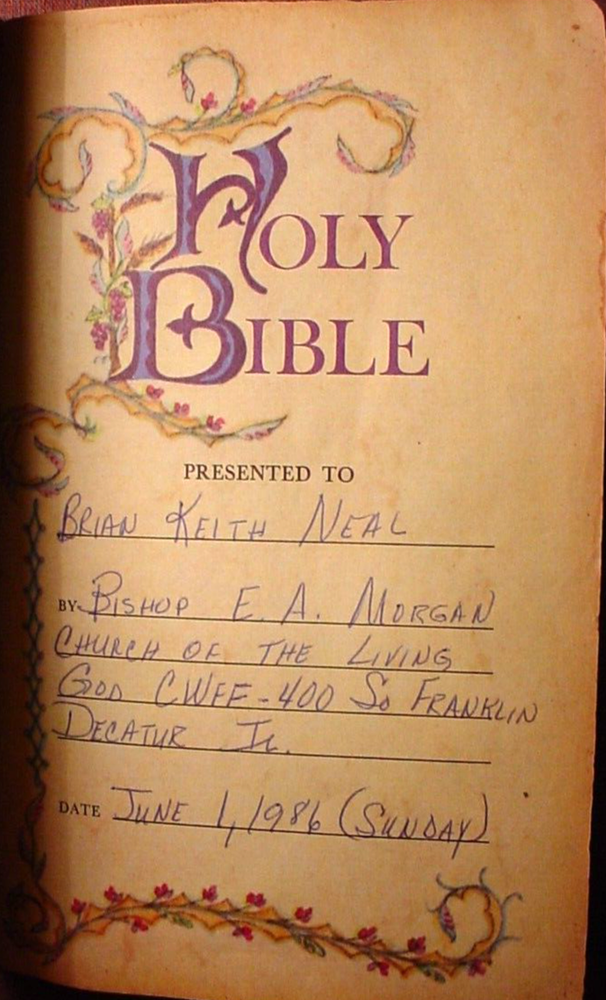 HOLY
BIBLE
PRESENTED TO
BRIAN KEITH NEAL
BY BISHOP E. A. MORGAN
CHURCH OF THE LIVING
GOD CWFF-400 SO FRANKLIN
DECATUR IL.
DATE JUNE 1, 1986 (SUNDAY)